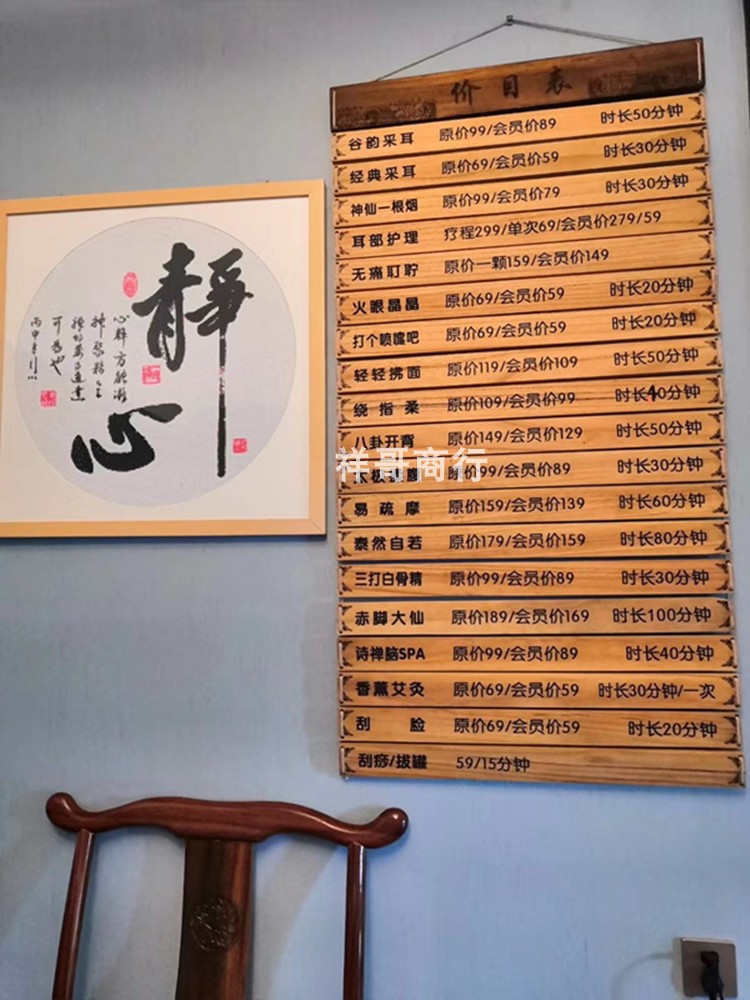 静心
价目表
谷韵采耳 原价99/会员价89 时长50分钟
经典采耳 原价69/会员价59 时长30分钟
神仙一根烟 原价99/会员价79 时长30分钟
耳部护理 疗程299/单次69/会员价279/59
无痛耵聍 原价一颗159/会员价149
火眼晶晶 原价69/会员价59 时长20分钟
打个喷嚏吧 原价69/会员价59 时长20分钟
轻轻拂面 原价119/会员价109 时长50分钟
绕指柔 原价109/会员价99 时长40分钟
八卦开背 原价149/会员价129 时长50分钟
原价99/会员价89 时长30分钟
祥哥商行
易疏摩 原价159/会员价139 时长60分钟
泰然自若 原价179/会员价159 时长80分钟
三打白骨精 原价99/会员价89 时长30分钟
赤脚大仙 原价189/会员价169 时长100分钟
诗禅脑SPA 原价99/会员价89 时长40分钟
香薰艾灸 原价69/会员价59 时长30分钟/一次
刮脸 原价69/会员价59 时长20分钟
刮痧/拔罐 59/15分钟